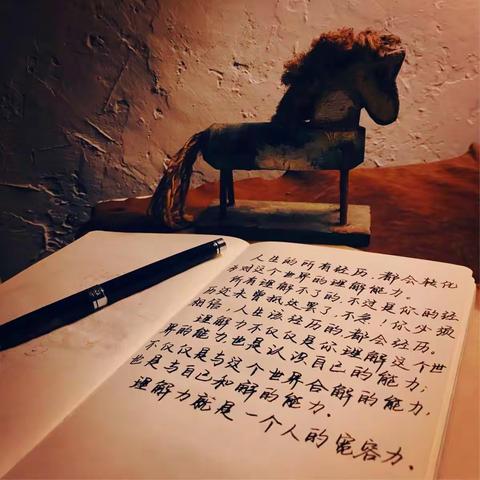 人生的所有经历,都会转化
为对这个世界的理解能力。
所有理解不了的,不过是你的经
历还未曾抵达罢了,不急!你必须
相信,人生该经历的,都会经历。
理解力不仅仅是你理解这个世
界的能力也是认识自己的能力;
不仅仅是与这个世界合解的能力,
也是与自己和解的能力。
理解力就是一个人的宽容力、